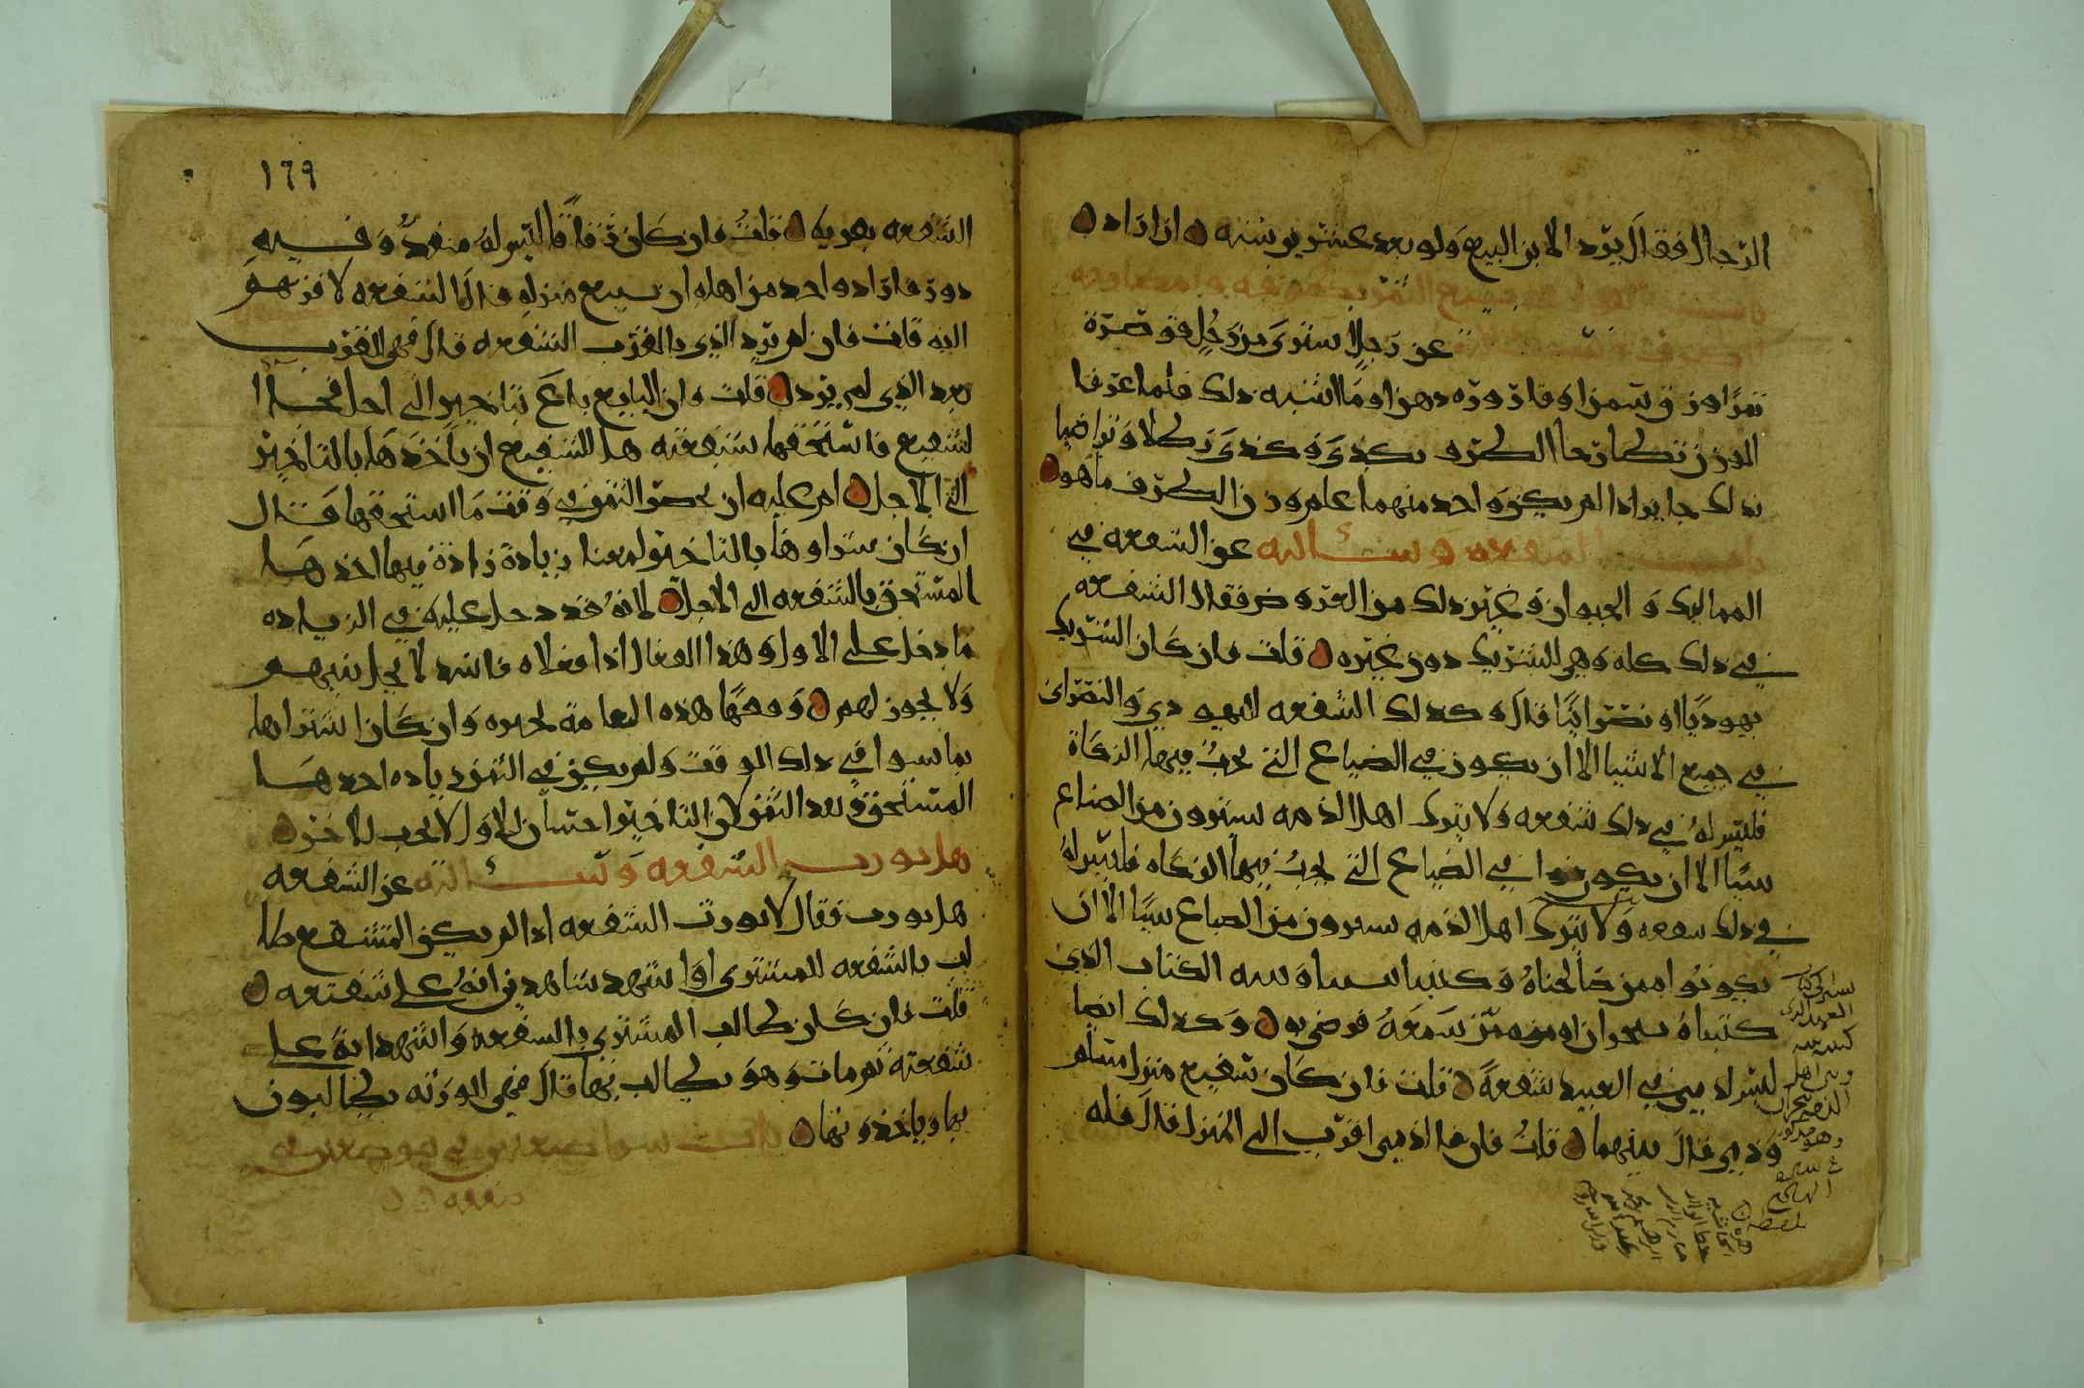 الرجال فقال يرد الابن البيع ولو بعد عشرين سنه اذا اراد
باب القول في بيع الثمن بظرفه
عن رجل اشترى من رجل قوصرة
تمرا وزق سمن او قارورة دهن او ما اشبه ذلك فلما عرفا
الوزن كما طرحا الظرف بكذى وكذى رطلا وتراضيا
بذلك جايز اذا لم يكن واحد منهما علم وزن الظرف ما هو
باب الشفعه وسألته عن الشفعه في
المماليك والحيوان وغير ذلك من العروض فقال الشفعه
في ذلك كله وهي للشريك دون غيره قلت فان كان الشريك
يهوديا او نصرانيا قال وكذلك الشفعه لليهودي والنصراني
في جميع الاشيا الا ان يكون في الضياع التي يجب فيها الزكاة
فليس له في ذلك شفعه ولا يترك اهل الذمه يشترون من الضياع
شيا الا ان يكونوا في الضياع التي يجب فيها الزكاه فليس له
في ذلك شفعه ولا يترك اهل الذمه يشترون من الضياع شيا الا ان
يكونوا ممن صالحناه وكتبنا بيننا وبينه الكتاب الذي
كتبناه بنجران او من سمعه فرضي به وكذلك ايضا
ليس لذمي في العبيد شفعة قلت فان كان شفيع منزل مسلم
وذمي قال بينهما قلت فان كان الذمي اقرب الى المنزل قال فله
١٦٩
الشفعه بقربه قلت فان كان زقاقا ليس له منفذ وفيه
دور فاراد واحد من اهله ان يبيع منزله قال الشفعه لاقربهم
اليه قلت فان لم يرد الذي بالقرب الشفعه قال فهي للقرب
بعد الذي لم يرد قلت وان البايع باع بتاخير الى اجل فجا
لشفيع فاستحقها بشفعته هل للشفيع ان ياخذها بالتاخير
الى الاجل ام عليه ان يحضر الثمن في وقت ما استحقها قال
ان كان شراوها بالتاخير لمعنا زيادة زادة فيها اخذها
المستحق بالشفعه الى الاجل لانه قد دخل عليه في الزياده
ما دخل على الاول وهذا الفعال اذا فعلاه فاسد لا يحل بينهم
ولا يجوز لهم وفقها هذه العامة تجيزه وان كان اشتراها
بما تسوا في ذلك الوقت ولم يكن في الثمن زياده اخذها
المستحق بعد الثمن لان التاخير احسان للاول لا يجب للاخر
هل يورث الشفعه وسألته عن الشفعه
هل يورث فقال لا يورث الشفعه اذا لم يكن المستشفع طا
لب بالشفعه للمشتري او اشهد شاهدين انه على شفعته
قلت فان كان طالب المشتري بالشفعه واشهد انه على
شفعته ثم مات وهو يطالب بها قال فهي لورثه يطالبون
بها وياخذونها